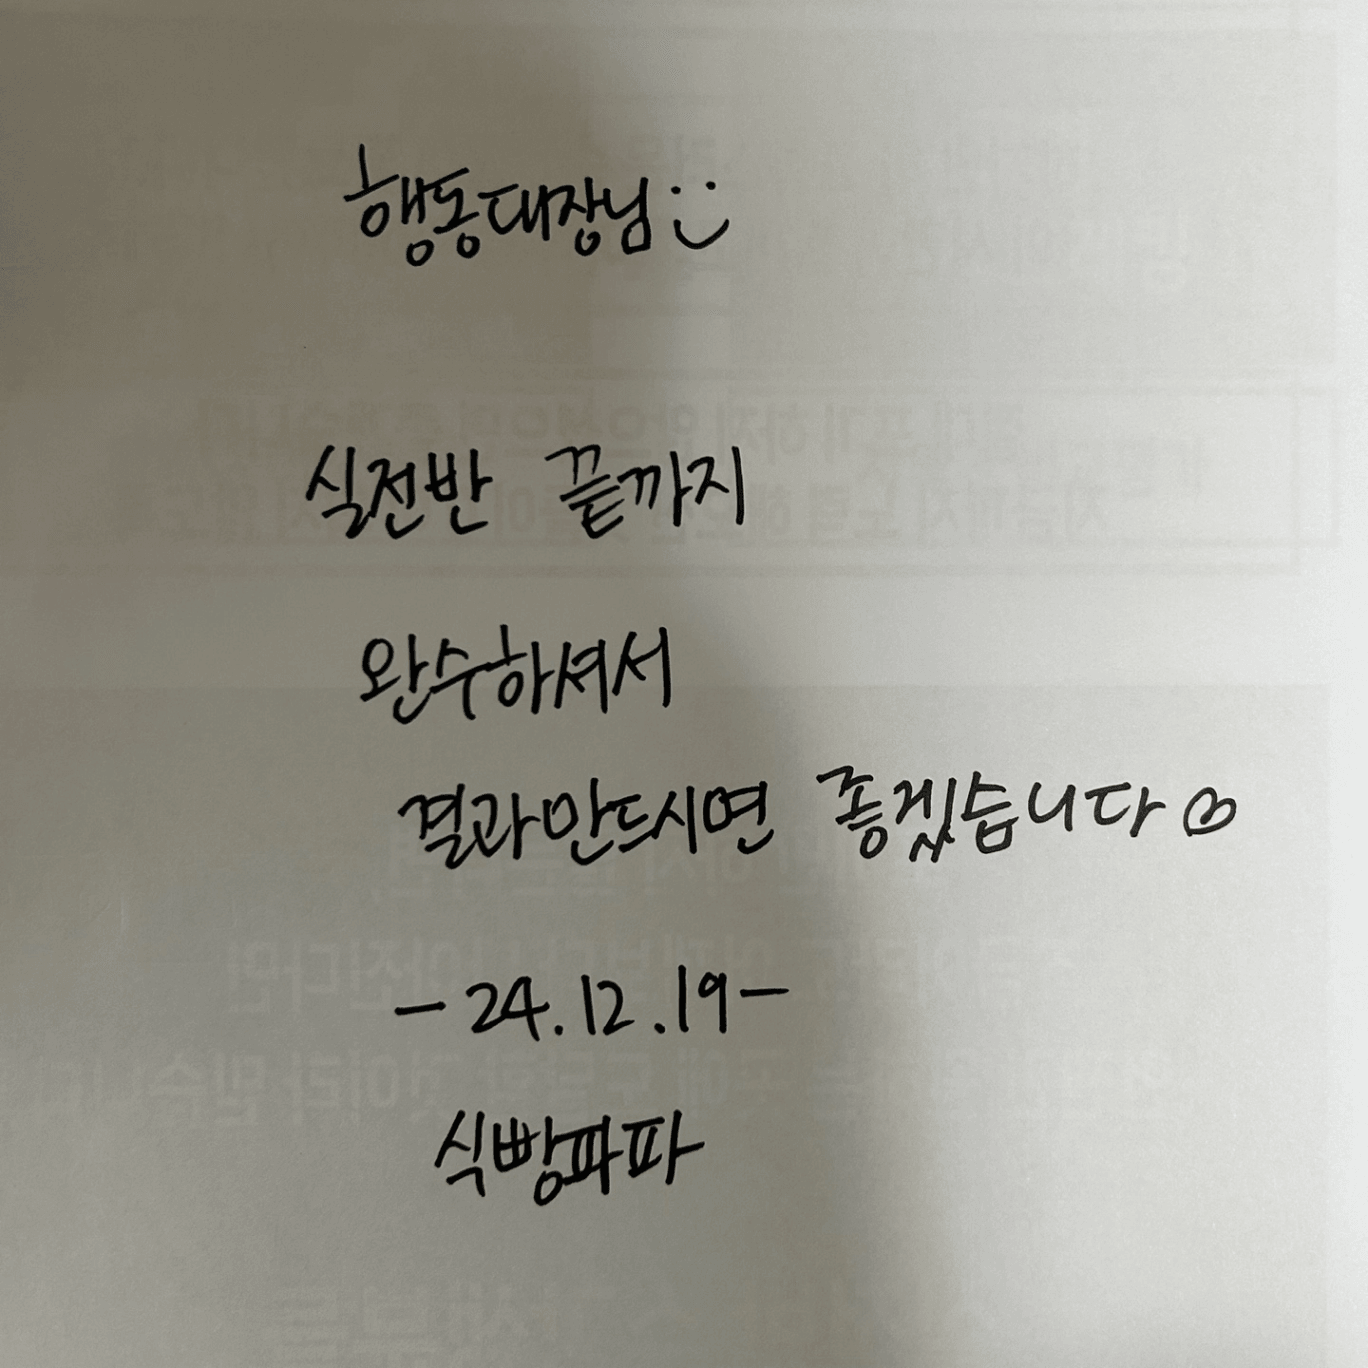 행동대장님 :)
실전반 끝까지
완수하셔서
결과만드시면 좋겠습니다
- 24.12.19 -
식빵파파